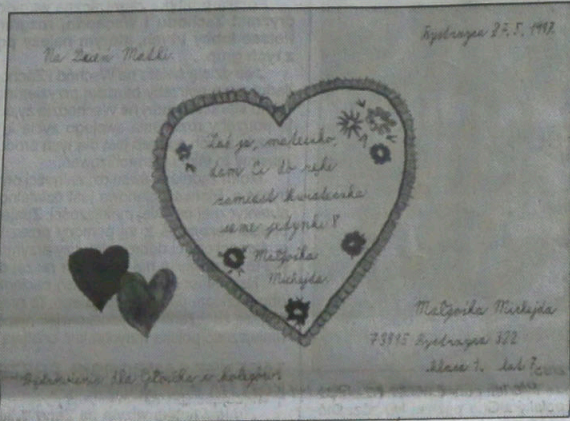 Na Dzień Matki.
Bystrzyca 27. 5. 1997.
Zaś ja, mateczko,
dam Ci do ręki
zamiast kwiateczka
same jedynki!
Małgośka
Michejda.
Małgośka Michejda
73995 Bystrzyca 322
klasa 1. lat 7
dla Głosika i kolegów!